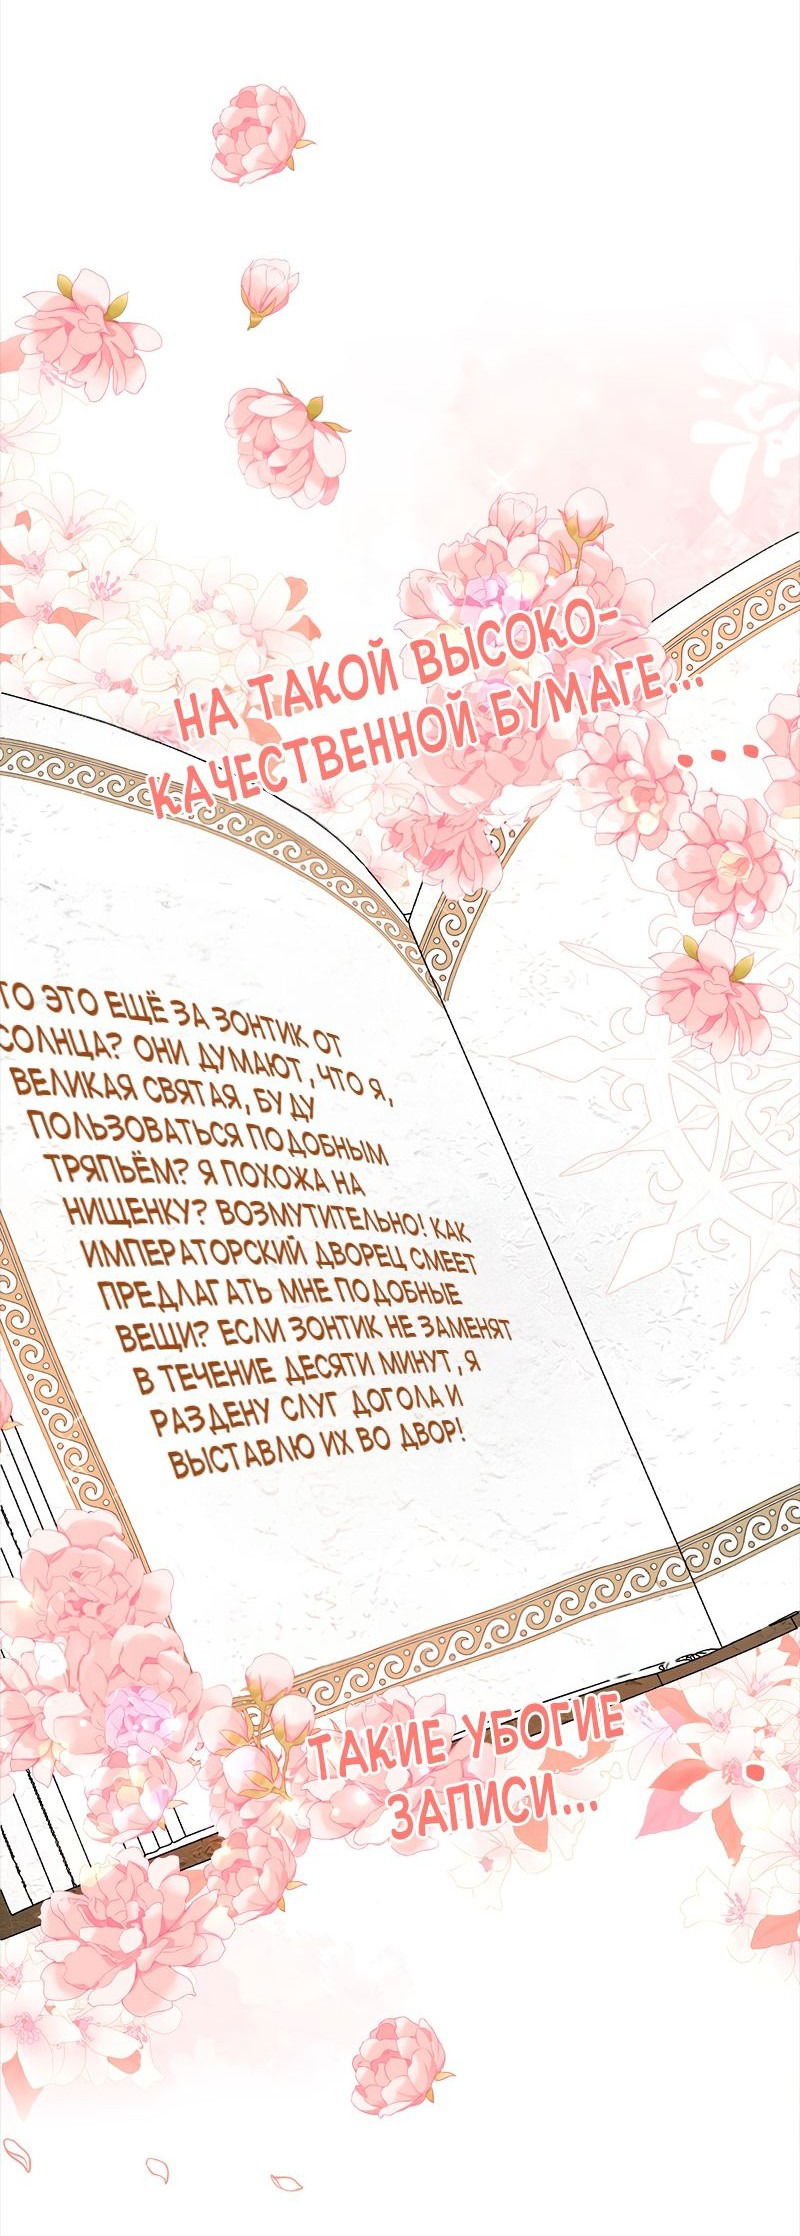 НА ТАКОЙ ВЫСОКО-
КАЧЕСТВЕННОЙ БУМАГЕ...
...
ТО ЭТО ЕЩЁ ЗА ЗОНТИК ОТ
СОЛНЦА? ОНИ ДУМАЮТ, ЧТО Я,
ВЕЛИКАЯ СВЯТАЯ, БУДУ
ПОЛЬЗОВАТЬСЯ ПОДОБНЫМ
ТРЯПЬЁМ? Я ПОХОЖА НА
НИЩЕНКУ? ВОЗМУТИТЕЛЬНО! КАК
ИМПЕРАТОРСКИЙ ДВОРЕЦ СМЕЕТ
ПРЕДЛАГАТЬ МНЕ ПОДОБНЫЕ
ВЕЩИ? ЕСЛИ ЗОНТИК НЕ ЗАМЕНЯТ
В ТЕЧЕНИЕ ДЕСЯТИ МИНУТ, Я
РАЗДЕНУ СЛУГ ДОГОЛА И
ВЫСТАВЛЮ ИХ ВО ДВОР!
ТАКИЕ УБОГИЕ
ЗАПИСИ...